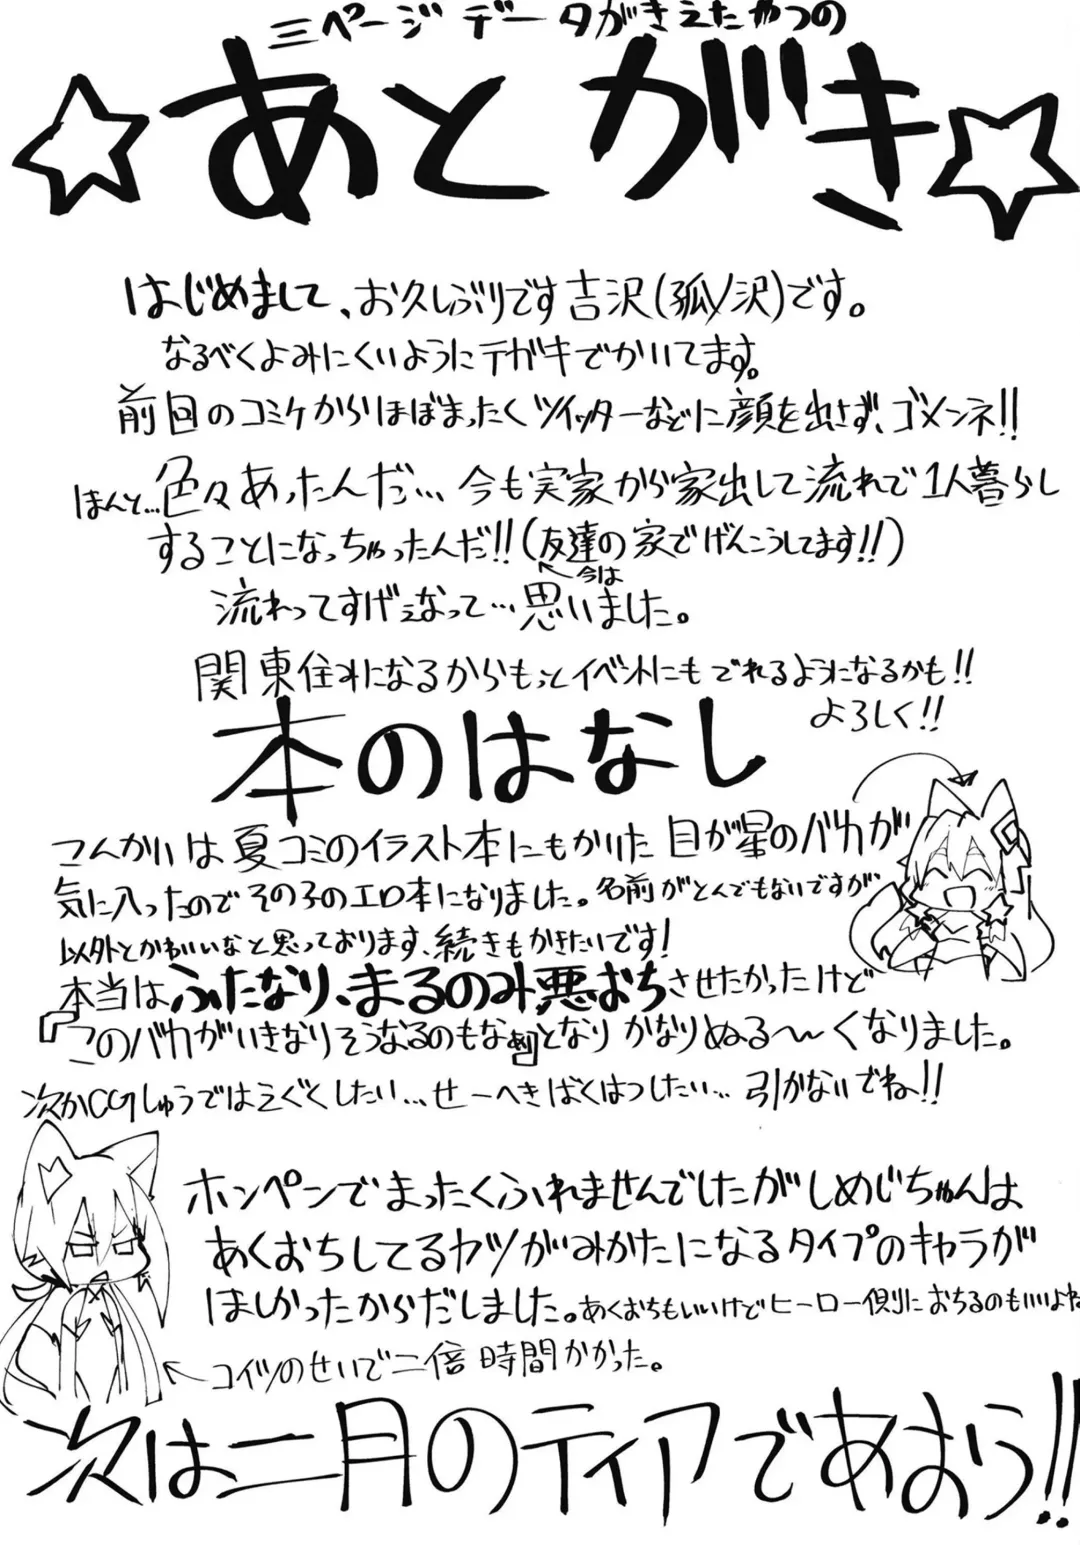 三ページデータがきえたやつの
☆あとがき☆
はじめまして、お久しぶりです吉沢(狐ノ沢)です。
なるべくよみにくいようにテガキでかいてます。
前回のコミケからほぼまったくツイッターなどに顔を出さず、ゴメンネ!!
ほんと…色々あったんだ…今も実家から家出して流れで1人暮らし
することになっちゃったんだ!!(友達の家でげんこうしてます!!)
←今は
流れってすげぇなって…思いました。
関東住みになるからもっとイベントにもでれるようになるかも!!
よろしく!!
本のはなし
こんかいは夏コミのイラスト本にもかいた目が星のバカが
気に入ったのでその子のエロ本になりました。名前がとんでもないですが
以外とかわいいなと思っております、続きもかきたいです!
本当はふたなり、まるのみ、悪おちさせたかったけど
『このバカがいきなりそうなるのもなぁ』となりかなりぬる〜くなりました。
次かCGしゅうではえぐくしたい…せーへきばくはつしたい…引かないでね!!
ホンペンでまったくふれませんでしたがしめじちゃんは
あくおちしてるヤツがみかたになるタイプのキャラが
ほしかったからだしました。あくおちもいいけどヒーロー側におちるのもいいよね
←コイツのせいで二倍時間かかった。
次は二月のティアであおう!!